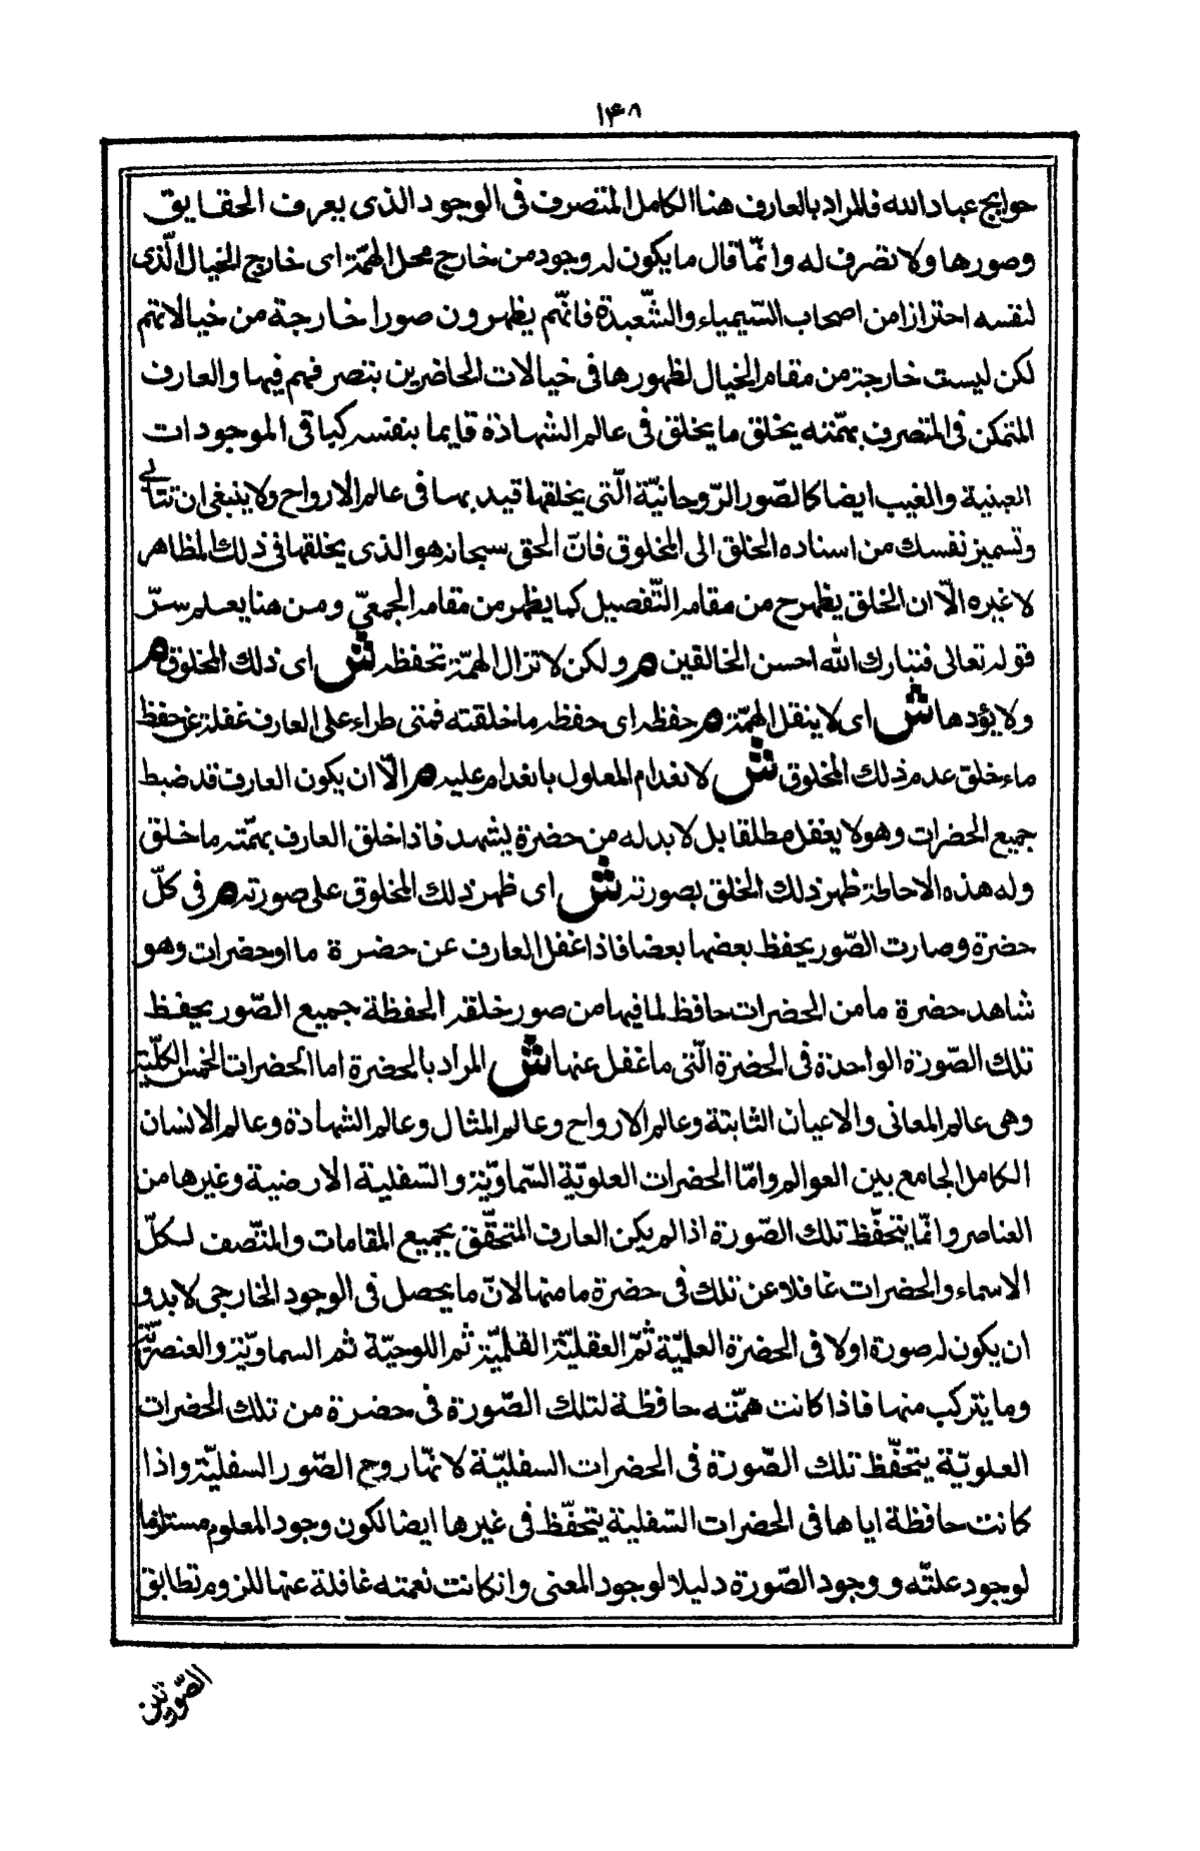 ۱۴۸
حوایج عباد الله فالمراد بالعارف هنا الکامل المتصرف فی الوجود الذی یعرف الحقایق
وصورها ولا تصرف له وانّما قال ما یکون له وجود من خارج محل الهمّة ای خارج الخیال الّذی
لنفسه احترازا من اصحاب السّیمیاء والشّعبدة فانّهم یظهرون صورا خارجة من خیالاتهم
لکن لیست خارجة من مقام الخیال لظهورها فی خیالات الحاضرین بتصرفهم فیها والعارف
المتمکن فی المتصرف بهمّته یخلق ما یخلق فی عالم الشهادة قایما بنفسه کباقی الموجودات
العینیة والغیب ایضا کالصّور الرّوحانیّة الّتی یخلقها قید بها فی عالم الارواح ولا ینبغی ان تتأبی
وتسمیز نفسك من اسناده الخلق الی المخلوق فانّ الحق سبحانه هو الذی یخلقها فی ذلك المظاهر
لا غیره الّا ان الخلق یظهر ح من مقام التّفصیل کما یظهر من مقام الجمعیّ ومن هنا یعلم سرّ
قوله تعالی فتبارك الله احسن الخالقین م ولکن لا تزال الهمّة تحفظه ش ای ذلك المخلوق م
ولا یؤدها ش ای لا ینقل الهمّة م حفظه ای حفظه ما خلقته فمتی طراء علی العارف غفلة عن حفظ
ماء خلق عدم ذلك المخلوق ش لانعدام المعلول بانعدام علیه م الّا ان یکون العارف قد ضبط
جمیع الحضرات وهو لا یغفل مطلقا بل لا بد له من حضرة یشهد فاذا خلق العارف بهمّته ما خلق
وله هذه الاحاطة ظهر ذلك الخلق بصورته ش ای ظهر ذلك المخلوق علی صورته م فی کلّ
حضرة وصارت الصّور یحفظ بعضها بعضا فاذا غفل العارف عن حضرة ما او حضرات وهو
شاهد حضرة ما من الحضرات حافظ لما فیها من صور خلقه الحفظة جمیع الصّور یحفظ
تلك الصّورة الواحدة فی الحضرة الّتی ما غفل عنها ش المراد بالحضرة اما الحضرات الخمس الکلّیة
وهی عالم المعانی والاعیان الثابتة وعالم الارواح وعالم المثال وعالم الشهادة وعالم الانسان
الکامل الجامع بین العوالم وامّا الحضرات العلویّة السّماویّة والسّفلیة الارضیة وغیرها من
العناصر وانّما یتحفّظ تلك الصّورة اذا لم یکن العارف المتحقّق بجمیع المقامات والمتّصف لکلّ
الاسماء والحضرات غافلا عن تلك فی حضرة ما منها لانّ ما یحصل فی الوجود الخارجی لا بد و
ان یکون له صورة اولا فی الحضرة العلمیّة ثمّ العقلیّة القلمیّة ثم اللوحیّة ثم السماویّة والعنصریّة
وما یترکب منها فاذا کانت همّته حافظة لتلك الصّورة فی حضرة من تلك الحضرات
العلویّة یتحفّظ تلك الصّورة فی الحضرات السفلیّة لانّها روح الصّور السفلیّة واذا
کانت حافظة ایاها فی الحضرات السّفلیة یتحفّظ فی غیرها ایضا لکون وجود المعلوم مستلزما
لوجود علتّه ووجود الصّورة دلیلا لوجود المعنی وانکانت نعمته غافلة عنها للزوم تطابق
الصّورتین